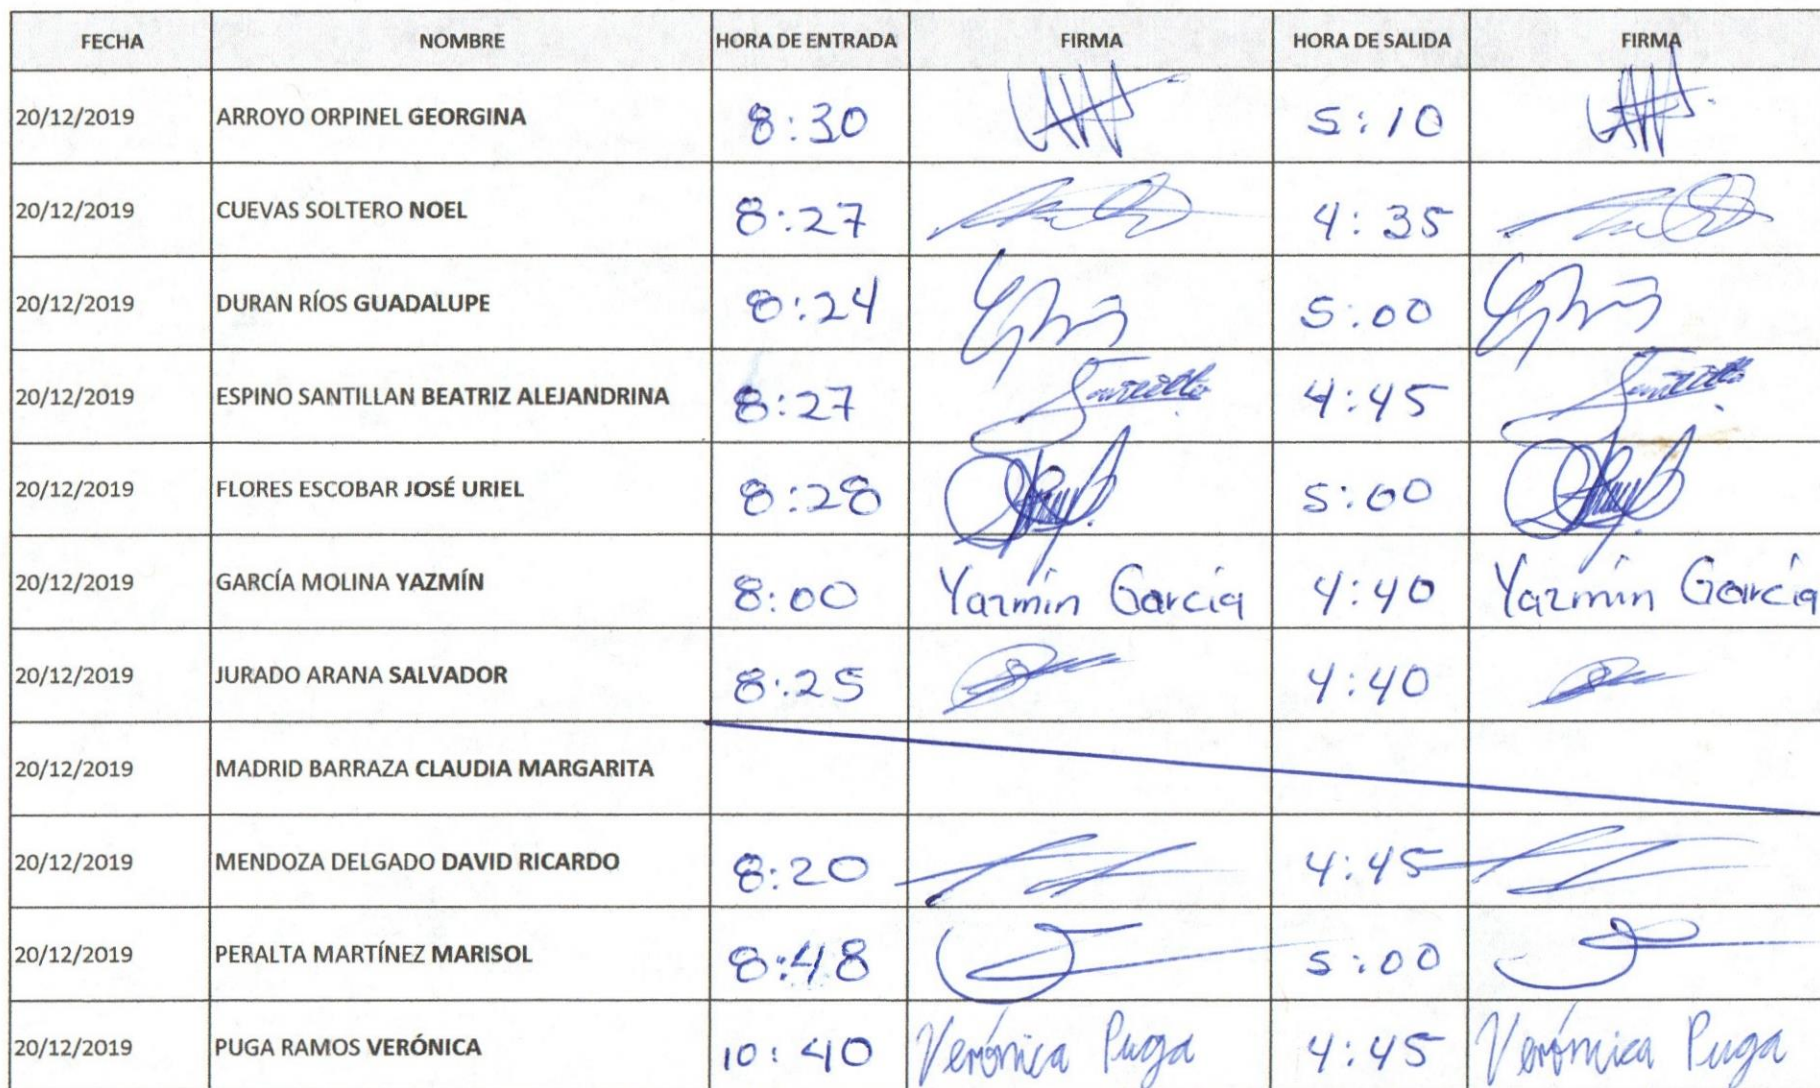 FECHA NOMBRE HORA DE ENTRADA FIRMA HORA DE SALIDA FIRMA
20/12/2019 ARROYO ORPINEL GEORGINA 8:30 5:10
20/12/2019 CUEVAS SOLTERO NOEL 8:27 4:35
20/12/2019 DURAN RÍOS GUADALUPE 8:24 5:00
20/12/2019 ESPINO SANTILLAN BEATRIZ ALEJANDRINA 8:27 4:45
20/12/2019 FLORES ESCOBAR JOSÉ URIEL 8:28 5:00
20/12/2019 GARCÍA MOLINA YAZMÍN 8:00 Yazmín García 4:40 Yazmín García
20/12/2019 JURADO ARANA SALVADOR 8:25 4:40
20/12/2019 MADRID BARRAZA CLAUDIA MARGARITA
20/12/2019 MENDOZA DELGADO DAVID RICARDO 8:20 4:45
20/12/2019 PERALTA MARTÍNEZ MARISOL 8:48 5:00
20/12/2019 PUGA RAMOS VERÓNICA 10:40 Verónica Puga 4:45 Verónica Puga